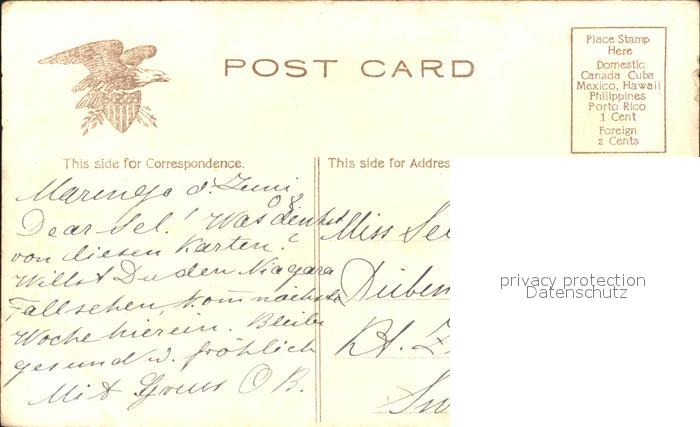 POST CARD
Place Stamp
Here
Domestic
Canada Cuba
Mexico, Hawaii
Philippines
Porto Rico
1 Cent
Foreign
2 Cents
This side for Correspondence.
This side for Addres
Marengo d. Juni
08.
Dear Sel.! Was denkst
von diesen Karten?
Willst Du den Niagara
Fall sehen, kom nächste
Woche hierein. Bleibe
gesund u. fröhlich
Mit Gruss O B.
Miss See
Düben
Kt. Z
Sw
privacy protection
Datenschutz